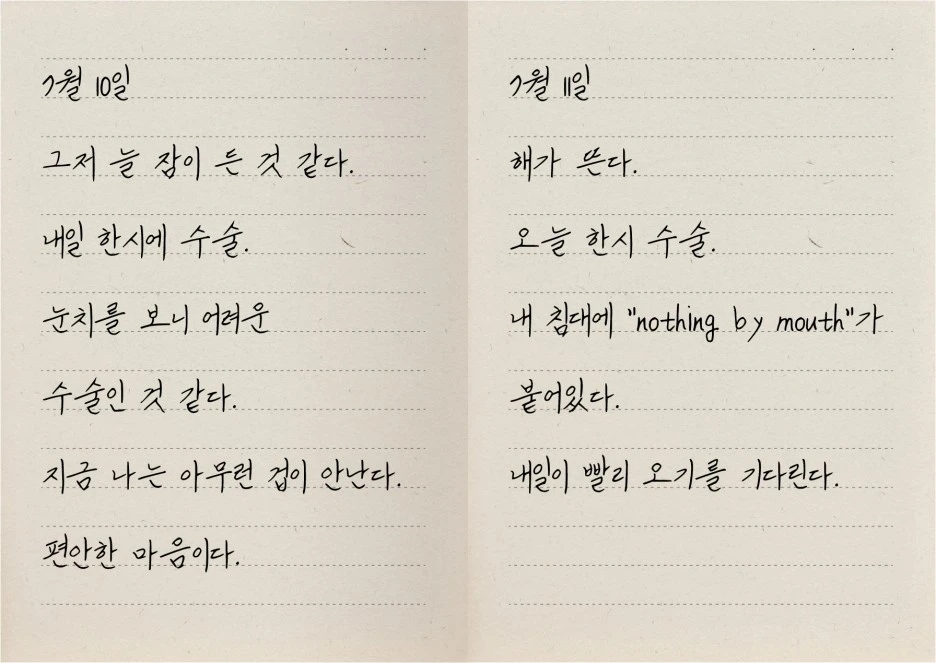 7월 10일
그저 늘 잠이 든 것 같다.
내일 한시에 수술.
눈치를 보니 어려운
수술인 것 같다.
지금 나는 아무런 겁이 안난다.
편안한 마음이다.
7월 11일
해가 뜬다.
오늘 한시 수술.
내 침대에 "nothing by mouth"가
붙어있다.
내일이 빨리 오기를 기다린다.